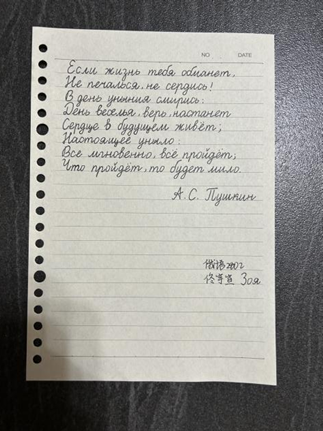 NO DATE
Если жизнь тебя обманет,
Не печалься, не сердись!
В день уныния смирись:
День веселья, верь, настанет
Сердце в будущем живёт;
Настоящее уныло:
Всё мгновенно, всё пройдёт;
Что пройдёт, то будет мило.
А.С. Пушкин
俄语2002
佟 Зоя